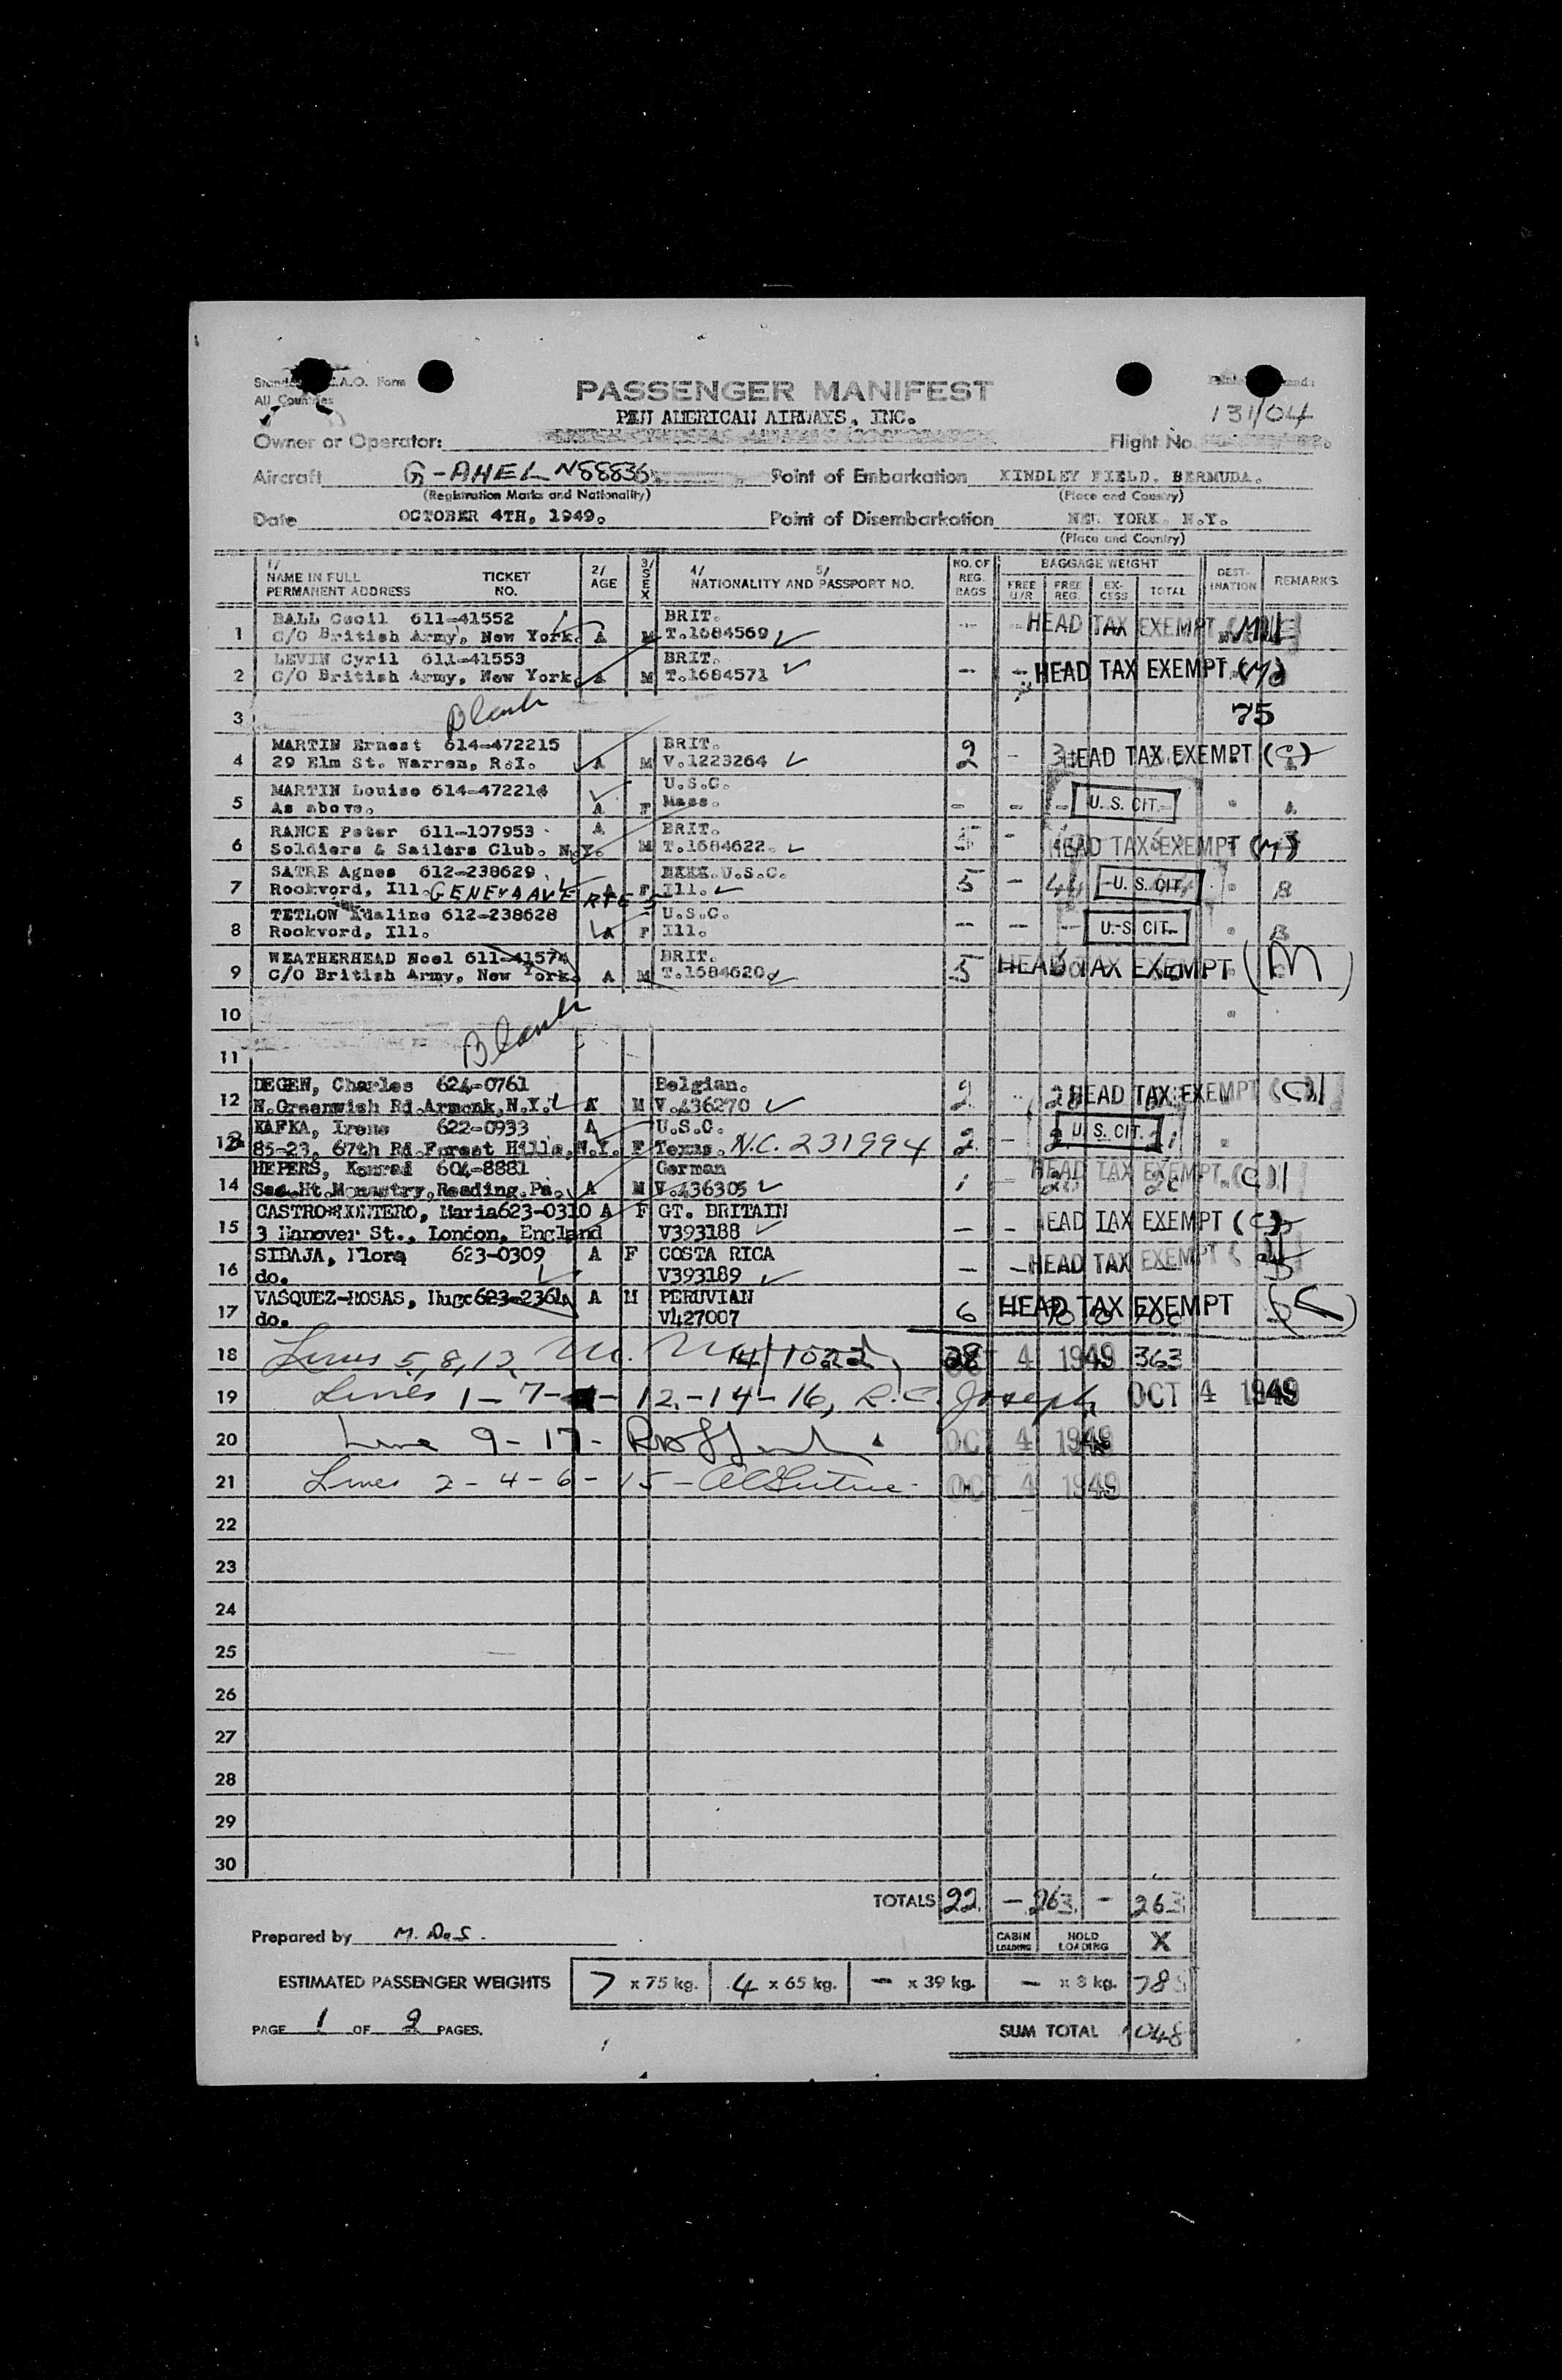 All Countries
PASSENGER MANIFEST
131/04
PAN AMERICAN AIRWAYS, INC.
Owner or Operator: Flight No.
Aircraft G-AHEL N88836 Point of Embarkation KINDLEY FIELD. BERMUDA.
(Registration Marks and Nationality) (Place and Country)
Date OCTOBER 4TH, 1949. Point of Disembarkation NEW YORK. N.Y.
(Place and Country)
1/ NAME IN FULL PERMANENT ADDRESS TICKET NO. 2/ AGE 3/ SEX 4/ 5/ NATIONALITY AND PASSPORT NO. NO. OF REG. BAGS BAGGAGE WEIGHT FREE U/R FREE REG. EX-CESS TOTAL DEST-INATION REMARKS
BALL Cecil 611-41552 BRIT.
1 C/O British Army, New York. A M T.1684569 -- HEAD TAX EXEMPT
LEVIN Cyril 611-41553 BRIT.
2 C/O British Army, New York. A M T.1684571 -- HEAD TAX EXEMPT (M)
3 Blank 75
MARTIN Ernest 614-472215 BRIT.
4 29 Elm St. Warren, R.I. A M V.1223264 2 - HEAD TAX EXEMPT (C)
MARTIN Louise 614-472214 U.S.C.
5 As above. A F Mass. - - - U. S. CIT.
RANCE Peter 611-107953 A BRIT.
6 Soldiers & Sailers Club. N.Y. M T.1684622. 5 - HEAD TAX EXEMPT (M)
SATRE Agnes 612-238629 U.S.C.
7 Rockvord, Ill. GENEVA AVE RTE 5 A F Ill. 5 - 44 U. S. CIT. B
TETLOW Adaline 612-238628 U.S.C.
8 Rockvord, Ill. A F Ill. -- -- -- U. S. CIT. B
WEATHERHEAD Noel 611-41574 BRIT.
9 C/O British Army, New York. A M T.1684620 5 HEAD TAX EXEMPT (M)
10
11 Blank
DEGEN, Charles 624-0761 Belgian.
12 N.Greenwish Rd.Armonk,N.Y. A M V.436270 2 HEAD TAX EXEMPT (C)
KAFKA, Irene 622-0933 A U.S.C.
13 85-23, 67th Rd.Forest Hills, N.Y. F Texas. N.C. 231994 2 - U. S. CIT.
HEPERS, Konrad 604-8881 German
14 Sac.Ht.Monastry,Reading.Pa. A M V.436305 1 - HEAD TAX EXEMPT (C)
CASTRO MONTERO, Maria623-0310 A F GT. BRITAIN
15 3 Hanover St., London, England V393188 - - HEAD TAX EXEMPT (C)
SIBAJA, Flora 623-0309 A F COSTA RICA
16 do. V393189 - - HEAD TAX EXEMPT
VASQUEZ-ROSAS, Hugo623-2361 A M PERUVIAN
17 do. V427007 6 HEAD TAX EXEMPT (C)
18 Lines 5, 8, 13 OCT 4 1949 363
19 Lines 1-7- -12-14-16, R.C. Joseph OCT 4 1949
20 Line 9-17- OCT 4 1949
21 Lines 2-4-6-15- OCT 4 1949
22
23
24
25
26
27
28
29
30
TOTALS 22 - 263 - 263
Prepared by M. DeS. CABIN LOADING HOLD LOADING X
ESTIMATED PASSENGER WEIGHTS 7 x 75 kg. 4 x 65 kg. - x 39 kg. - x 8 kg. 785
PAGE 1 OF 2 PAGES. SUM TOTAL 1048